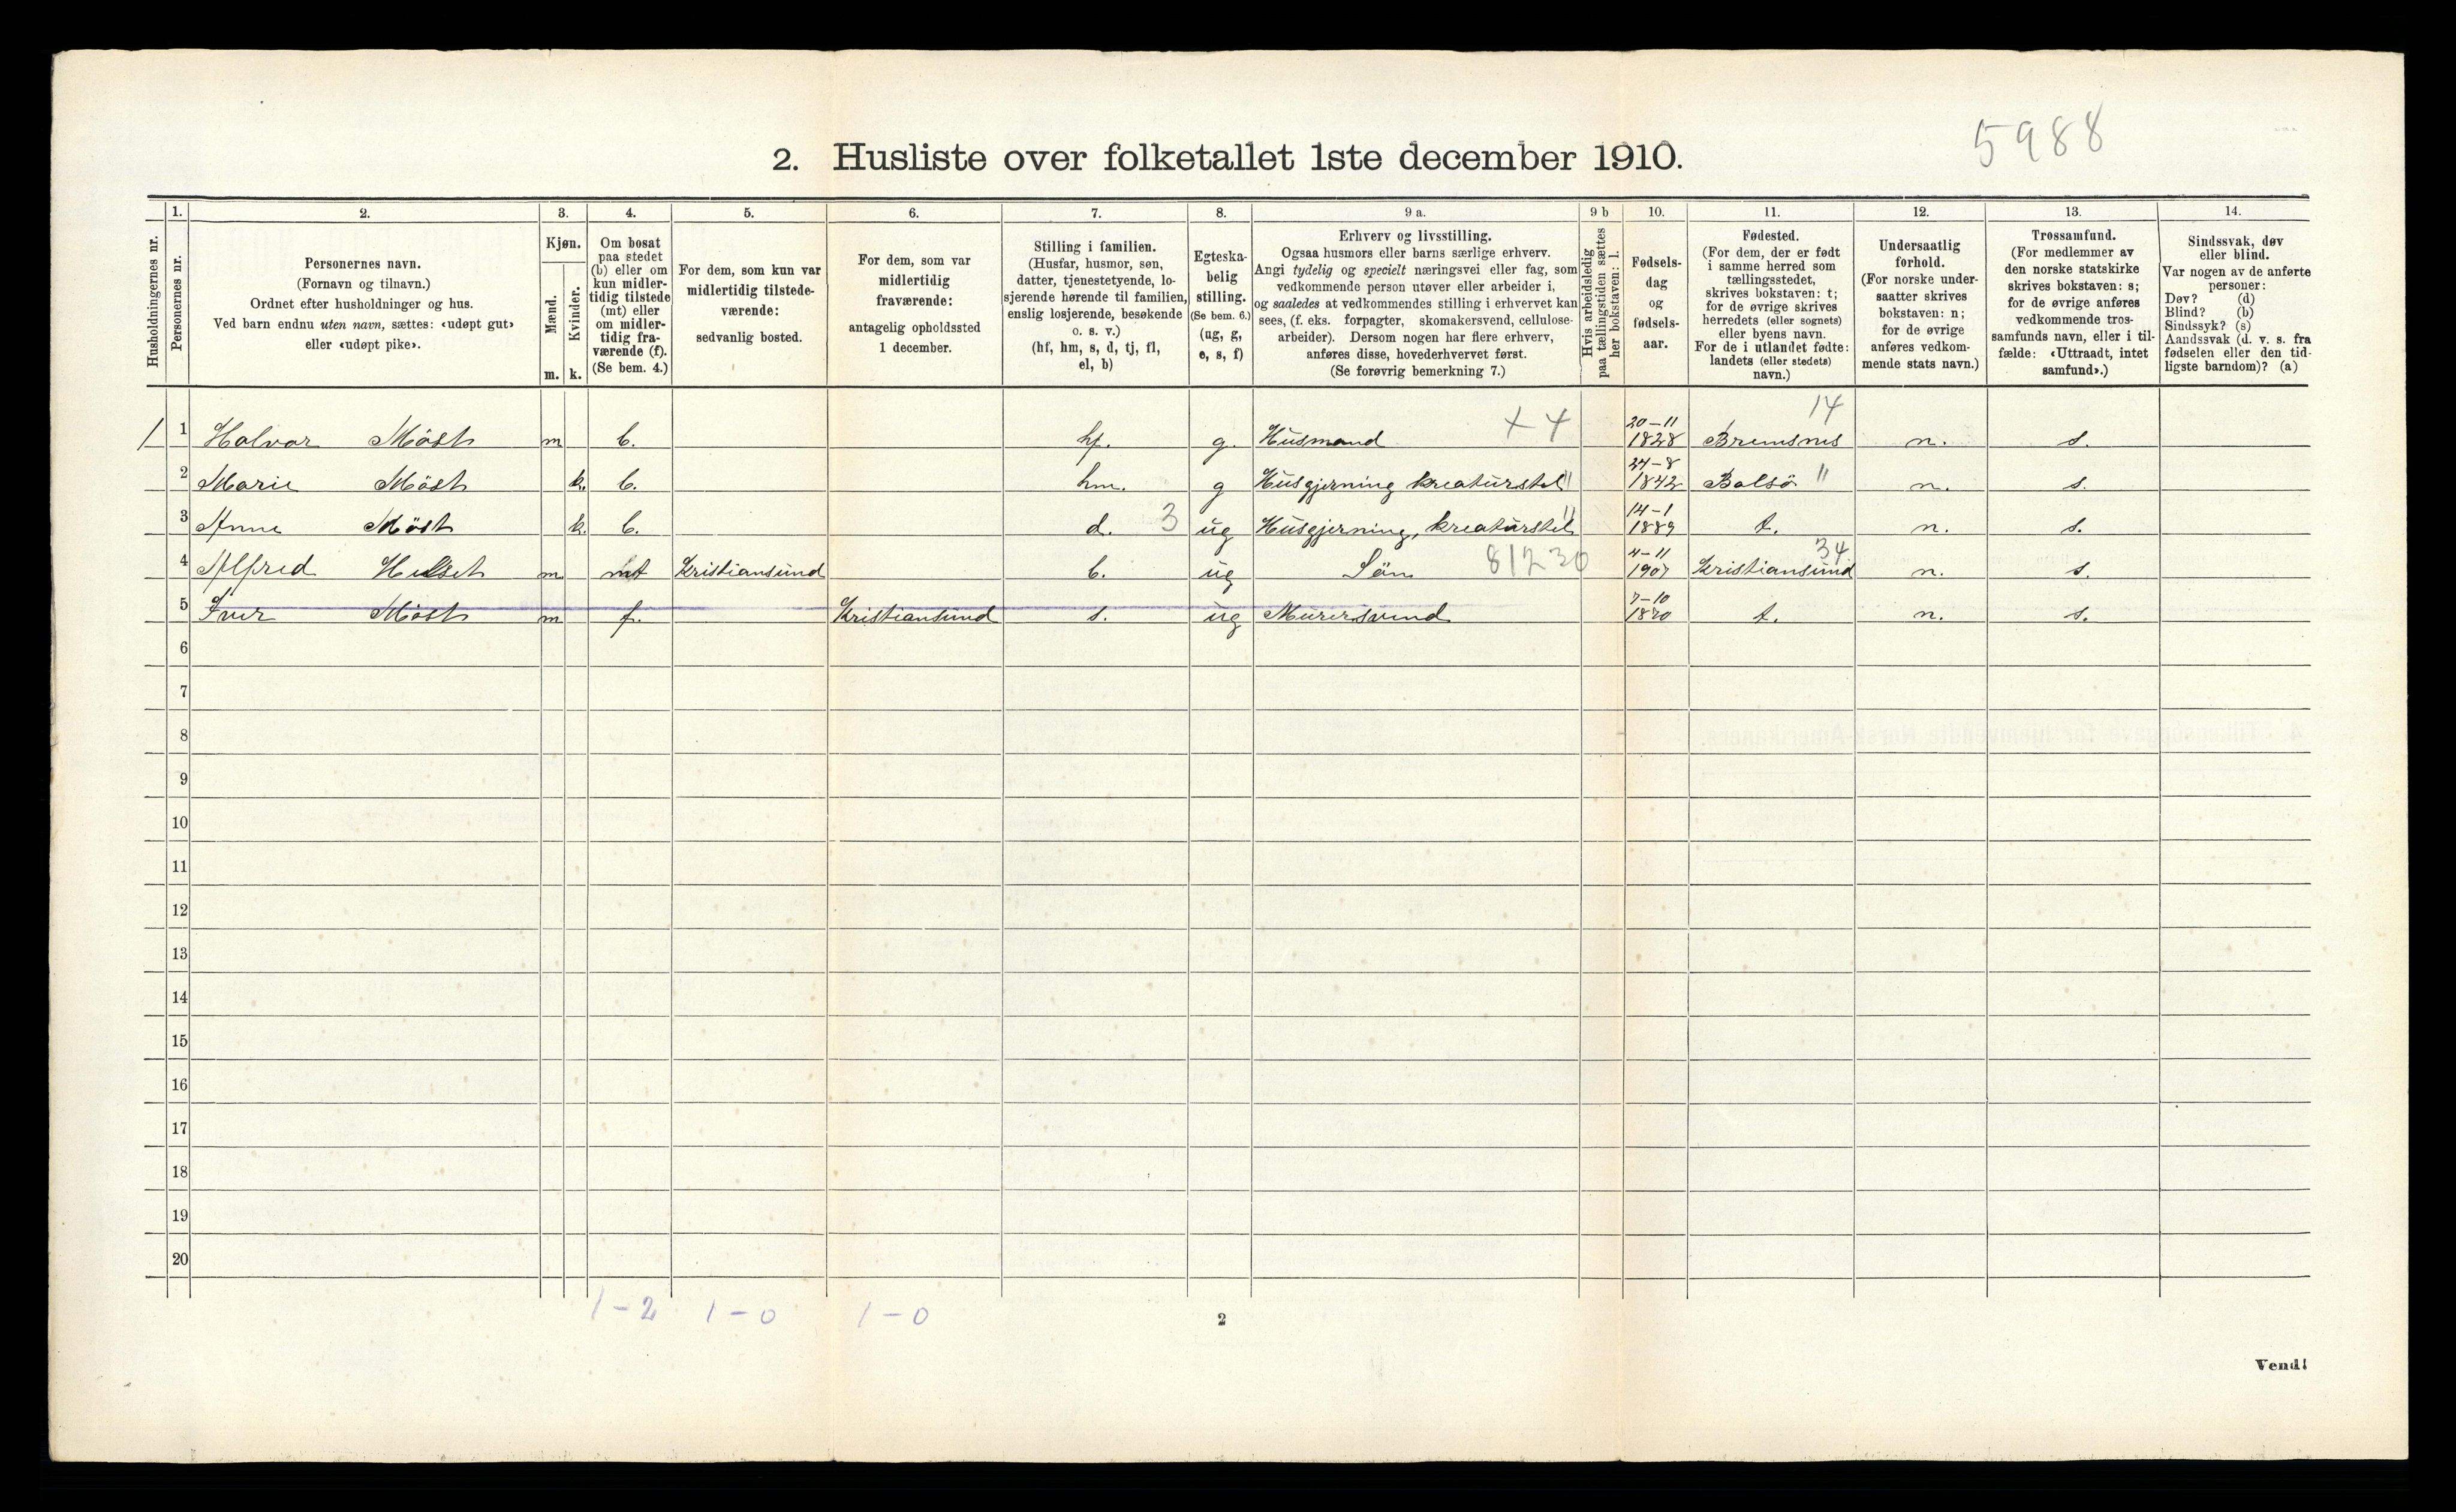 5988
2. Husliste over folketallet 1ste december 1910.
Husholdningernes nr.
1.
Personernes nr.
2.
Personernes navn.
(Fornavn og tilnavn.)
Ordnet efter husholdninger og hus.
Ved barn endnu uten navn, sættes: «udøpt gut»
eller «udøpt pike».
3.
Kjøn.
Mænd.
Kvinder.
m. k.
4.
Om bosat
paa stedet
(b) eller om
kun midler-
tidig tilstede
(mt) eller
om midler-
tidig fra-
værende (f).
(Se bem. 4.)
5.
For dem, som kun var
midlertidig tilstede-
værende:
sedvanlig bosted.
6.
For dem, som var
midlertidig
fraværende:
antagelig opholdssted
1 december.
7.
Stilling i familien.
(Husfar, husmor, søn,
datter, tjenestetyende, lo-
sjerende hørende til familien,
enslig losjerende, besøkende
o. s. v.)
(hf, hm, s, d, tj, fl,
el, b)
8.
Egteska-
belig
stilling.
(Se bem. 6.)
(ug, g,
e, s, f)
9 a.
Erhverv og livsstilling.
Ogsaa husmors eller barns særlige erhverv.
Angi tydelig og specielt næringsvei eller fag, som
vedkommende person utøver eller arbeider i,
og saaledes at vedkommendes stilling i erhvervet kan
sees, (f. eks. forpagter, skomakersvend, cellulose-
arbeider). Dersom nogen har flere erhverv,
anføres disse, hovederhvervet først.
(Se forøvrig bemerkning 7.)
9 b
Hvis arbeidsledig
paa tællingstiden sættes
her bokstaven: l.
10.
Fødsels-
dag
og
fødsels-
aar.
11.
Fødested.
(For dem, der er født
i samme herred som
tællingsstedet,
skrives bokstaven: t;
for de øvrige skrives
herredets (eller sognets)
eller byens navn.
For de i utlandet fødte:
landets (eller stedets)
navn.)
12.
Undersaatlig
forhold.
(For norske under-
saatter skrives
bokstaven: n;
for de øvrige
anføres vedkom-
mende stats navn.)
13.
Trossamfund.
(For medlemmer av
den norske statskirke
skrives bokstaven: s;
for de øvrige anføres
vedkommende tros-
samfunds navn, eller i til-
fælde: «Uttraadt, intet
samfund».)
14.
Sindssvak, døv
eller blind.
Var nogen av de anførte
personer:
Døv? (d)
Blind? (b)
Sindssyk? (s)
Aandssvak (d. v. s. fra
fødselen eller den tid-
ligste barndom)? (a)
1 1 Halvor Möst m b. hf. g. Husmand + 4 20-11 1828 Bremsnes 14 n. s.
2 Marie Möst k. b. hm. g Husgjerning kreaturstel " 24-8 1842 Bolsö " n. s.
3 Anne Möst k. b. d. 3 ug Husgjerning, kreaturstel " 14-1 1889 t. n. s.
4 Alfred m mt Kristiansund b. ug Sön 81230 4-11 1907 Kristiansund 34 n. s.
5 Iver Möst m f. Kristiansund s. ug Murersvend 7-10 1870 t. n. s.
6
7
8
9
10
11
12
13
14
15
16
17
18
19
20
1-2 1-0 1-0
2
Vend!